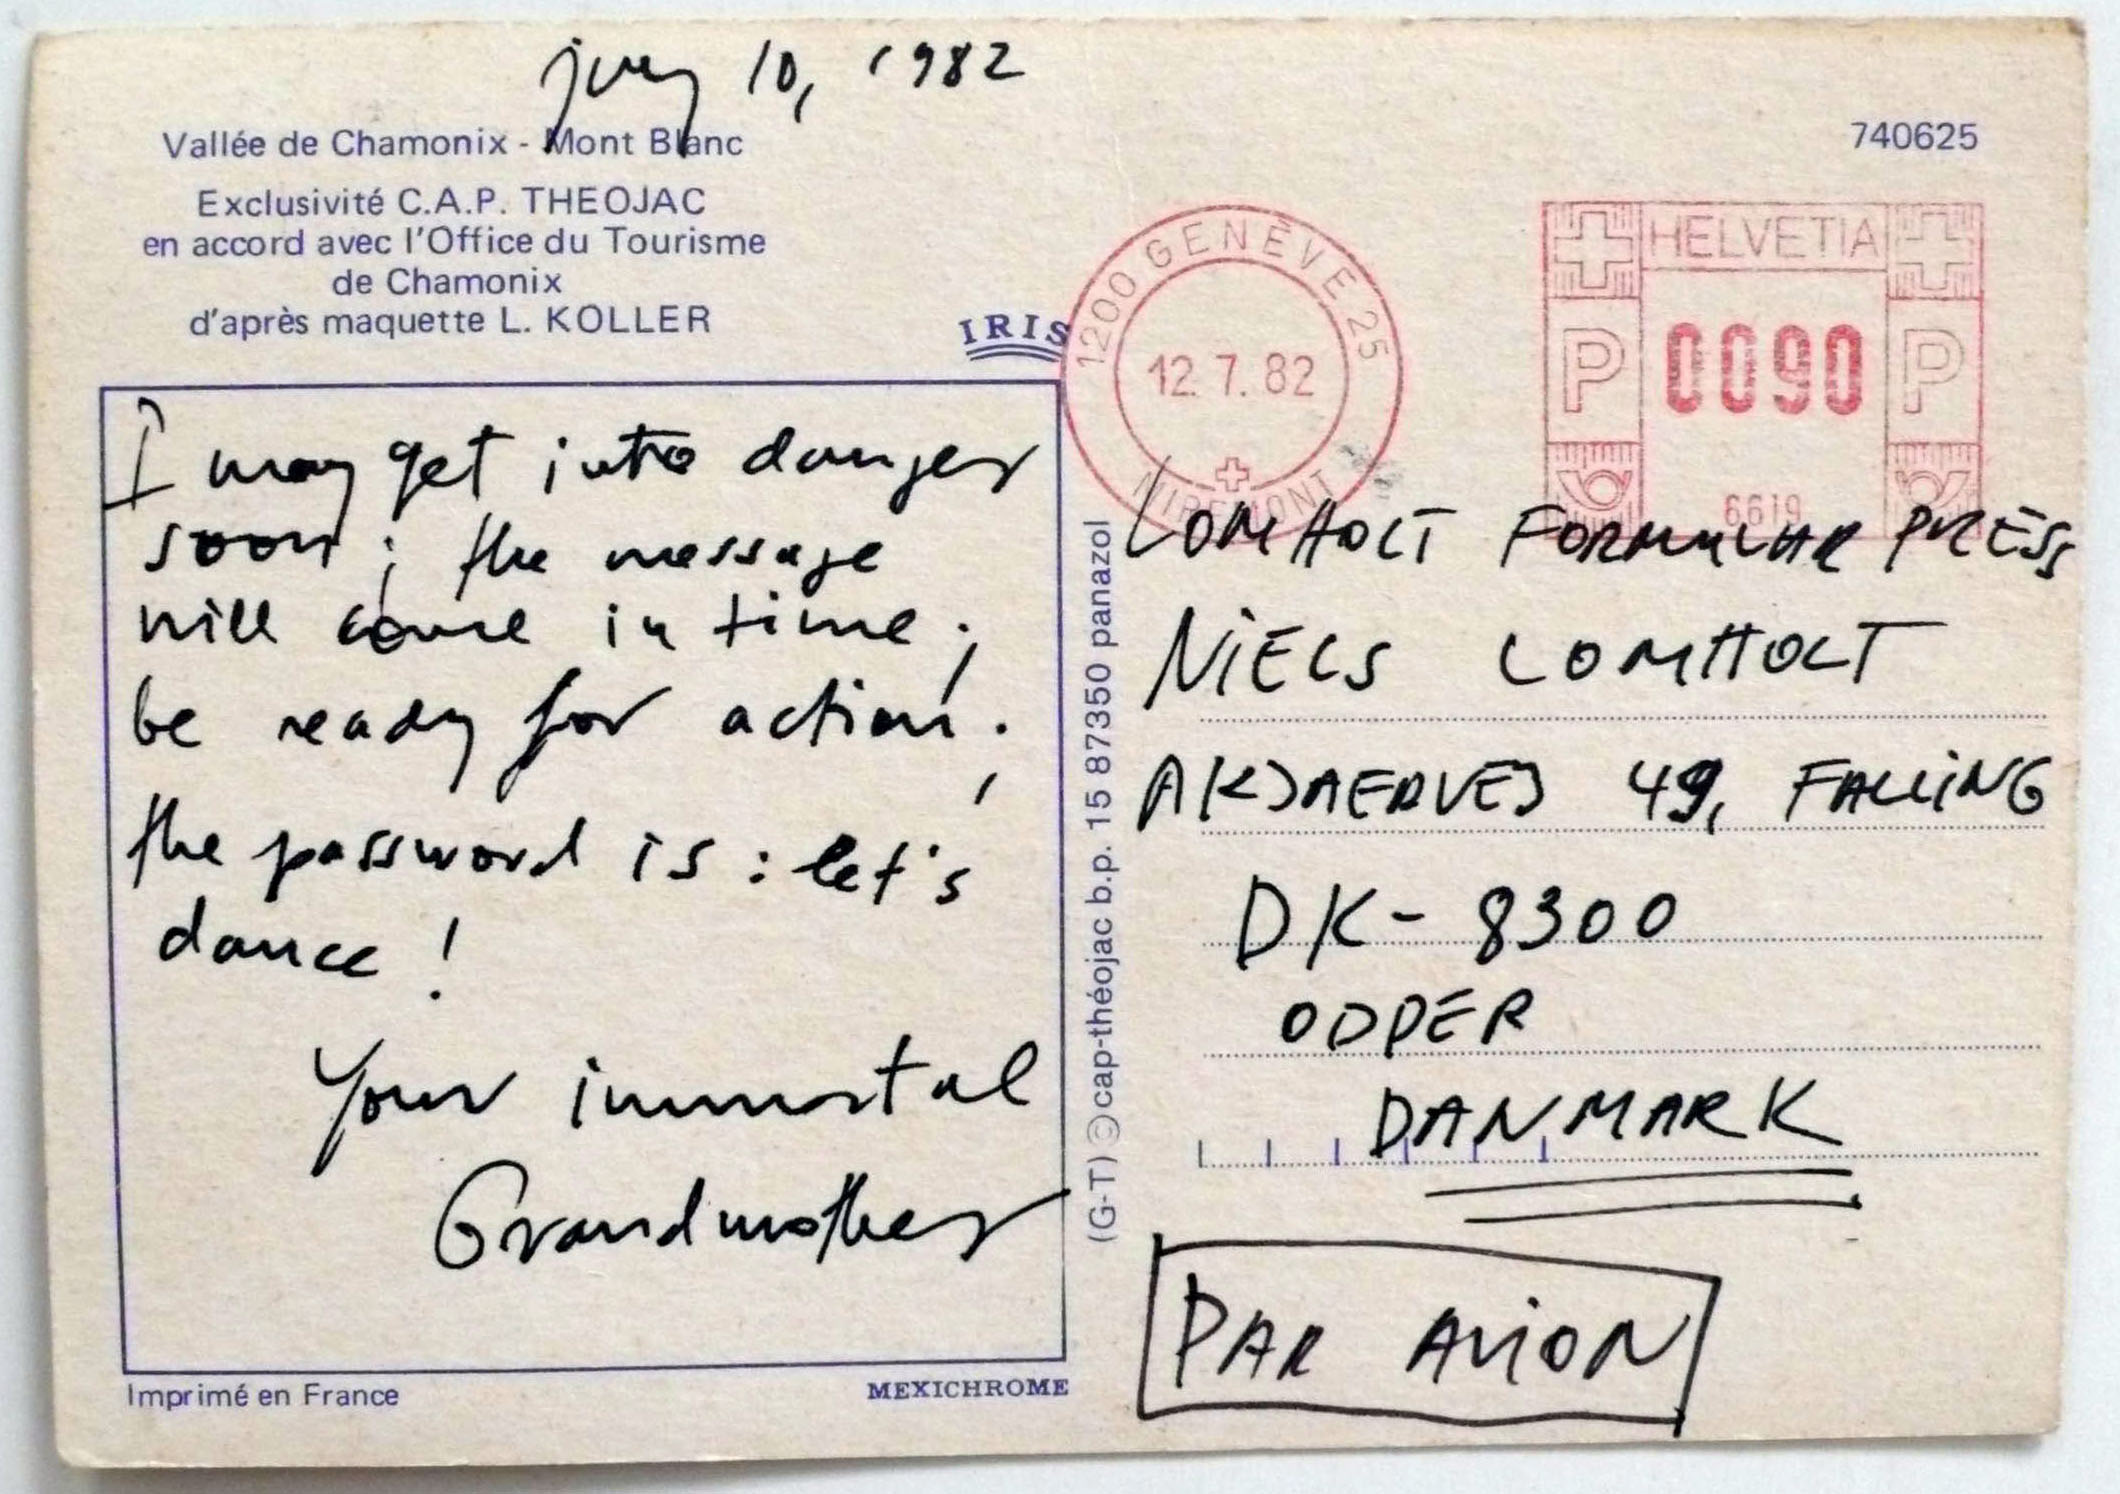 july 10, 1982
Vallée de Chamonix - Mont Blanc
Exclusivité C.A.P. THEOJAC
en accord avec l'Office du Tourisme
de Chamonix
d'après maquette L. KOLLER
IRIS
I may get into danger
soon; the message
will come in time;
be ready for action;
the password is: let's
dance!
Your immortal
Grandmother
Imprimé en France
MEXICHROME
(G-T) © cap-théojac b.p. 15 87350 panazol
740625
1200 GENÈVE 25
12.7.82
MIREMONT
HELVETIA
P 0090 P
6619
LOMHOLT FORMULAR PRESS
NIELS LOMHOLT
AKJAERVEJ 49, FALLING
DK-8300
ODDER
DANMARK
PAR AVION